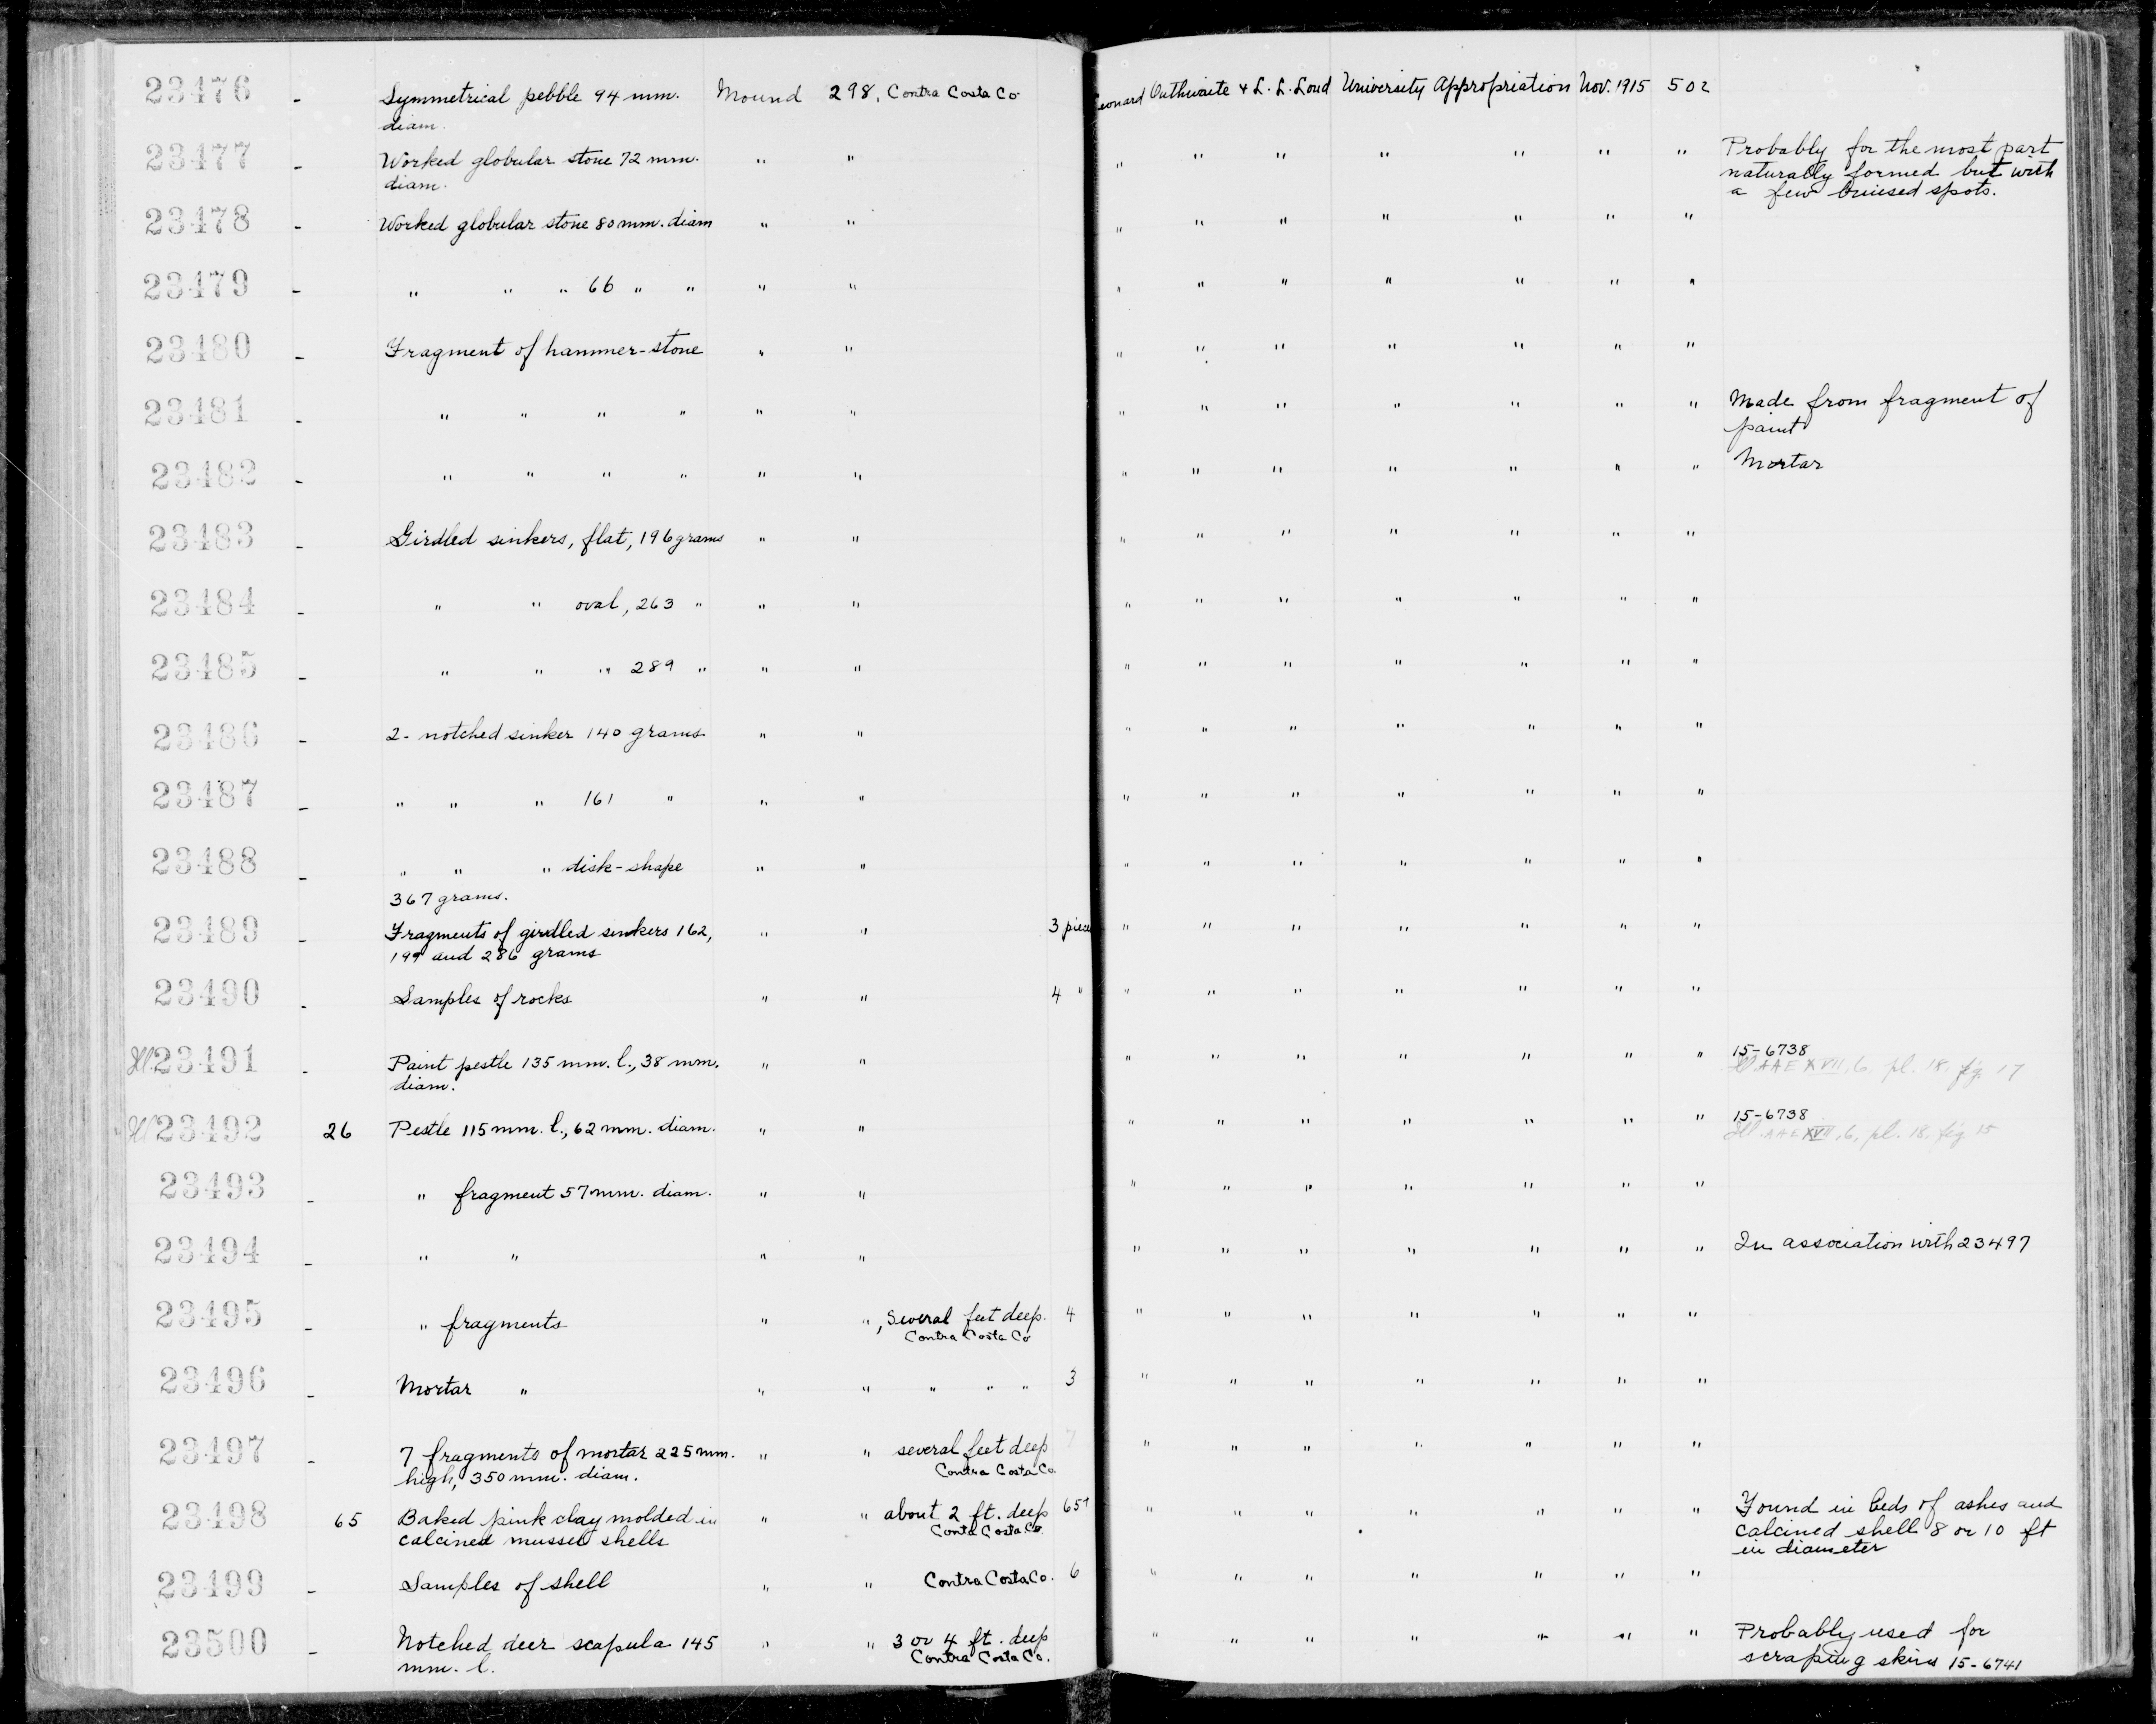 23476 - Symmetrical pebble 94 mm. Mound 298, Contra Costa Co. Leonard Outhwaite & L. L. Loud University Appropriation Nov. 1915 502
diam.
23477 - Worked globular stone 72 mm. " " " " " " " " " Probably for the most part
diam. naturally formed but with
a few bruised spots.
23478 - Worked globular stone 80 mm. diam " " " " " " " " "
23479 - " " " 66 " " " " " " " " " " "
23480 - Fragment of hammer-stone " " " " " " " " "
23481 - " " " " " " " " " " " " " Made from fragment of
paint
23482 - " " " " " " " " " " " " " Mortar
23483 - Girdled sinkers, flat, 196 grams " " " " " " " " "
23484 - " " oval, 263 " " " " " " " " " "
23485 - " " " 289 " " " " " " " " " "
23486 - 2- notched sinker 140 grams " " " " " " " " "
23487 - " " " 161 " " " " " " " " " "
23488 - " " " disk-shape " " " " " " " " "
367 grams.
23489 - Fragments of girdled sinkers 162, " " 3 piece " " " " " " "
199 and 286 grams
23490 - Samples of rocks " " 4 " " " " " " " "
Ill. 23491 - Paint pestle 135 mm. l., 38 mm. " " " " " " " " " 15-6738
diam. Ill. AAE XVII, 6, pl. 18, fig. 17
Ill 23492 26 Pestle 115 mm. l., 62 mm. diam. " " " " " " " " " 15-6738
Ill. AAE XVII, 6, pl. 18, fig 15
23493 - " fragment 57 mm. diam. " " " " " " " " "
23494 - " " " " " " " " " " " In association with 23497
23495 - " fragments " ", Several feet deep. 4 " " " " " " "
Contra Costa Co
23496 - Mortar " " " " " " 3 " " " " " " "
23497 - 7 fragments of mortar 225 mm. " " several feet deep 7 " " " " " " "
high, 350 mm. diam. Contra Costa Co.
23498 65 Baked pink clay molded in " " about 2 ft. deep 65+ " " " " " " " Found in beds of ashes and
calcined mussel shells Conta Costa Co. calcined shell 8 or 10 ft
in diameter
23499 - Samples of shell " " Contra Costa Co. 6 " " " " " " "
23500 - Notched deer scapula 145 " " 3 or 4 ft. deep " " " " " " " Probably used for
mm. l. Contra Costa Co. scraping skins 15-6741